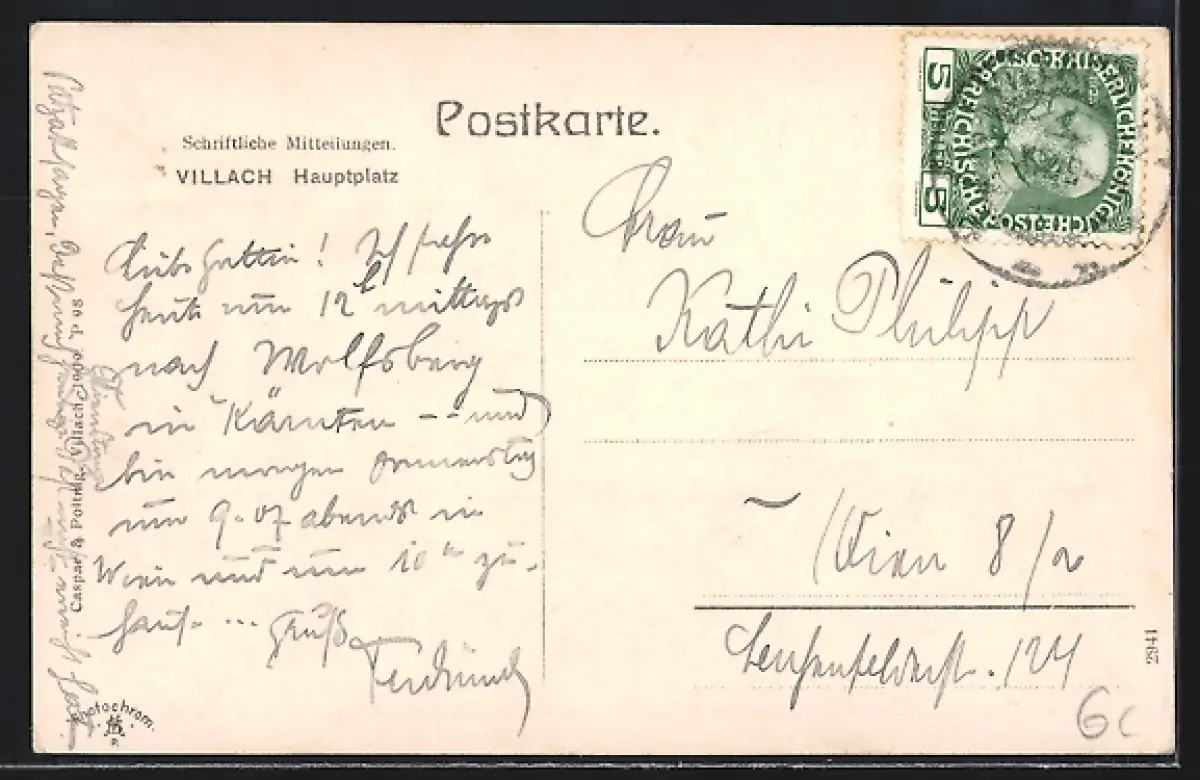 Postkarte.
Schriftliche Mitteilungen.
VILLACH Hauptplatz
Liebe Gattin! Ich fahre
heute um 12h mittags
nach Wolfsberg
in Kärnten -- und
bin morgen Donnerstag
um 9.07 abends in
Wien und um 10h zu-
haus. ... Gruß
Ferdinand
Frau
Kathi Philipp
Wien 8/2
Lerchenfelderst. 124
Caspar & Poltnig, Villach 1909 P. 98
Photochrom.
2941
6c
KAISERLICHE KÖNIGLICHE ÖSTERREICHISCHE POST
5 HELLER 5